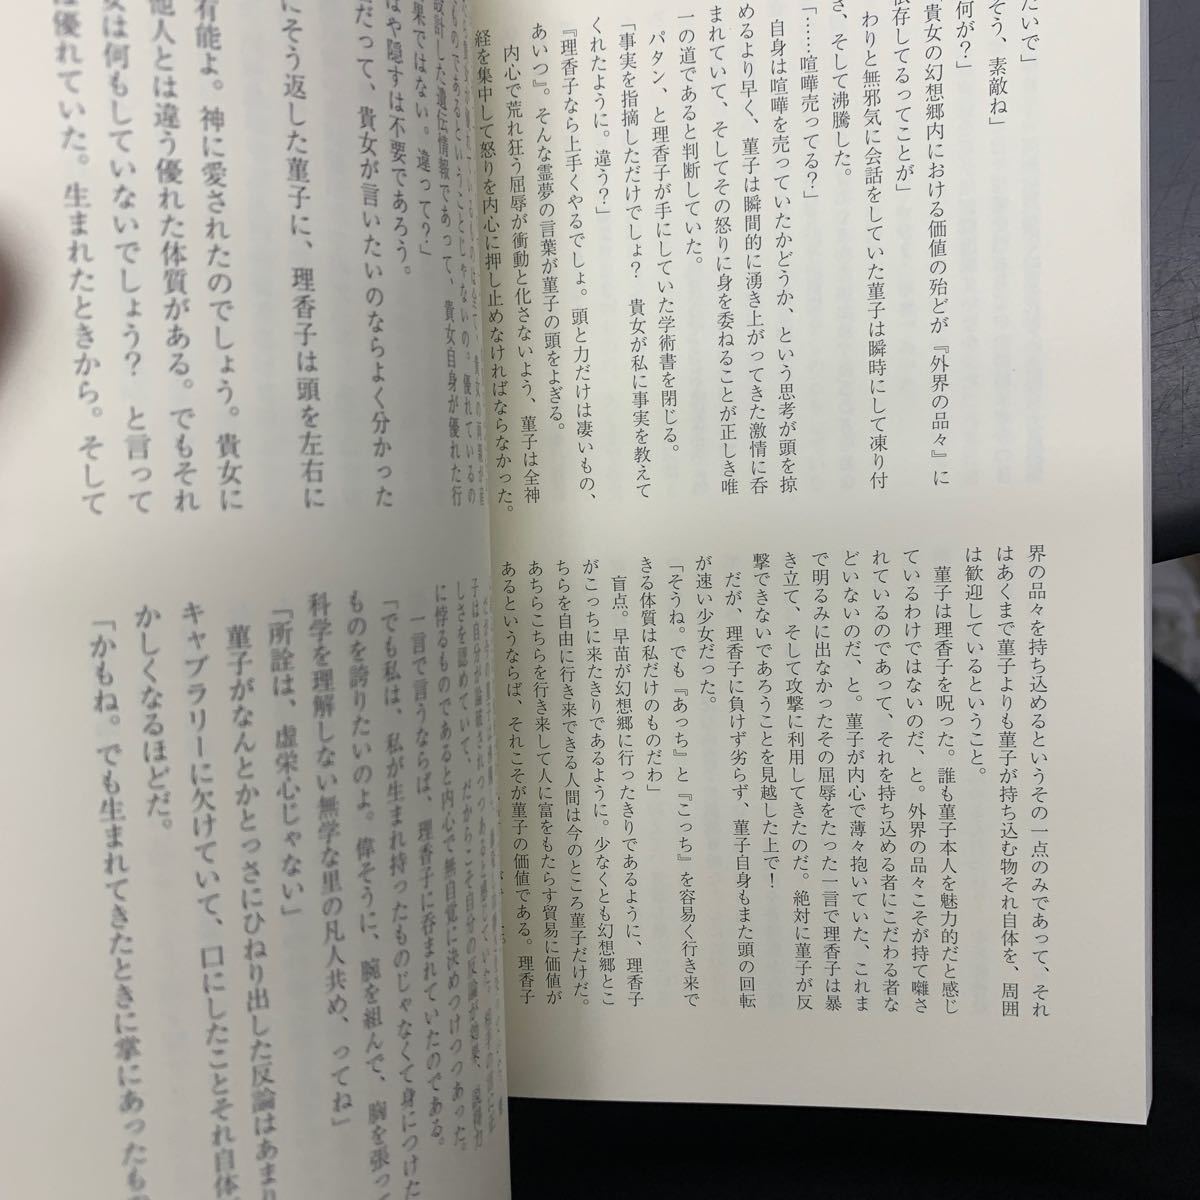 たいで」
そう、素敵ね」
何が？」
貴女の幻想郷内における価値の殆どが『外界の品々』に
依存してるってことが」
わりと無邪気に会話をしていた菫子は瞬時にして凍り付
き、そして沸騰した。
「……喧嘩売ってる？」
自身は喧嘩を売っていたかどうか、という思考が頭を掠
めるより早く、菫子は瞬間的に湧き上がってきた激情に呑
まれていて、そしてその怒りに身を委ねることが正しき唯
一の道であると判断していた。
パタン、と理香子が手にしていた学術書を閉じる。
「事実を指摘しただけでしょ？　貴女が私に事実を教えて
くれたように。違う？」
『理香子なら上手くやるでしょ。頭と力だけは凄いもの、
あいつ』。そんな霊夢の言葉が菫子の頭をよぎる。
内心で荒れ狂う屈辱が衝動と化さないよう、菫子は全神
経を集中して怒りを内心に押し止めなければならなかった。
界の品々を持ち込めるというその一点のみであって、それ
はあくまで菫子よりも菫子が持ち込む物それ自体を、周囲
は歓迎しているということ。
菫子は理香子を呪った。誰も菫子本人を魅力的だと感じ
ているわけではないのだ、と。外界の品々こそが持て囃さ
れているのであって、それを持ち込める者にこだわる者な
どいないのだ、と。菫子が内心で薄々抱いていた、これま
で明るみに出なかったその屈辱をたった一言で理香子は暴
き立て、そして攻撃に利用してきたのだ。絶対に菫子が反
撃できないであろうことを見越した上で！
だが、理香子に負けず劣らず、菫子自身もまた頭の回転
が速い少女だった。
「そうね。でも『あっち』と『こっち』を容易く行き来で
きる体質は私だけのものだわ」
盲点。早苗が幻想郷に行ったきりであるように、理香子
がこっちに来たきりであるように。少なくとも幻想郷とこ
ちらを自由に行き来できる人間は今のところ菫子だけだ。
あちらこちらを行き来して人に富をもたらす貿易に価値が
あるというならば、それこそが菫子の価値である。理香子
設計した遺伝情報であって、貴女自身が優れた行
果ではない。違って？」
はや隠すは不要であろう。
だって、貴女が言いたいのならよく分かった
にそう返した菫子に、理香子は頭を左右に
有能よ。神に愛されたのでしょう。貴女に
他人とは違う優れた体質がある。でもそれ
女は何もしていないでしょう？　と言って
は優れていた。生まれたときから。そして
に悖るものであると内心で無自覚に決めつけつつあった。
一言で言うならば、理香子に呑まれていたのである。
「でも私は、私が生まれ持ったものじゃなくて身につけた
ものを誇りたいのよ。偉そうに、腕を組んで、胸を張って
科学を理解しない無学な里の凡人共め、ってね」
「所詮は、虚栄心じゃない」
菫子がなんとかとっさにひねり出した反論はあまり
キャブラリーに欠けていて、口にしたことそれ自体
かしくなるほどだ。
「かもね。でも生まれてきたときに掌にあったもの